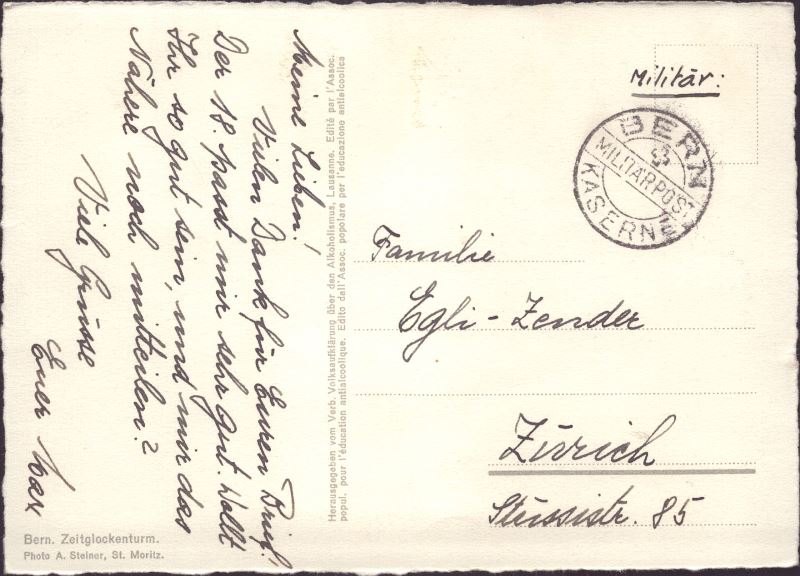 Meine Lieben!
Vielen Dank für Euren Brief.
Der 18. passt mir sehr gut. Wollt
Ihr so gut sein, und mir das
Nähere noch mitteilen?
Viele Grüsse
Euer Max
Herausgegeben vom Verb. Volksaufklärung über den Alkoholismus, Lausanne. Edité par l'Assoc.
popul. pour l'éducation antialcoolique. Edito dall'Assoc. popolare per l'educazione antialcoolica
Militär:
BERN
MILITÄRPOST
KASERNE
Familie
Egli-Zender
Zürich
Stüssistr. 85
Bern. Zeitglockenturm.
Photo A. Steiner, St. Moritz.